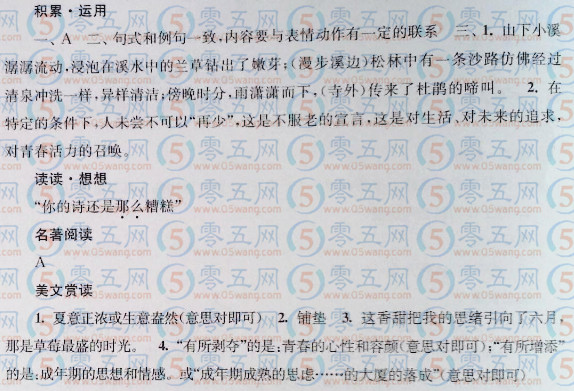 积累·运用
一、A 二、句式和例句一致,内容要与表情动作有一定的联系 三、1. 山下小溪
潺潺流动,浸泡在溪水中的兰草钻出了嫩芽;(漫步溪边)松林中有一条沙路仿佛经过
清泉冲洗一样,异样清洁;傍晚时分,雨潇潇而下,(寺外)传来了杜鹃的啼叫。 2. 在
特定的条件下,人未尝不可以“再少”,这是不服老的宣言,这是对生活、对未来的追求,
对青春活力的召唤。
读读·想想
“你的诗还是那么糟糕”
名著阅读
A
美文赏读
1. 夏意正浓或生意盎然(意思对即可) 2. 铺垫 3. 这香甜把我的思绪引向了六月,
那是草莓最盛的时光。 4. “有所剥夺”的是:青春的心性和容颜(意思对即可);“有所增添”
的是:成年期的思想和情感。或“成年期成熟的思虑……的大厦的落成”(意思对即可)
零五网
www.05wang.com